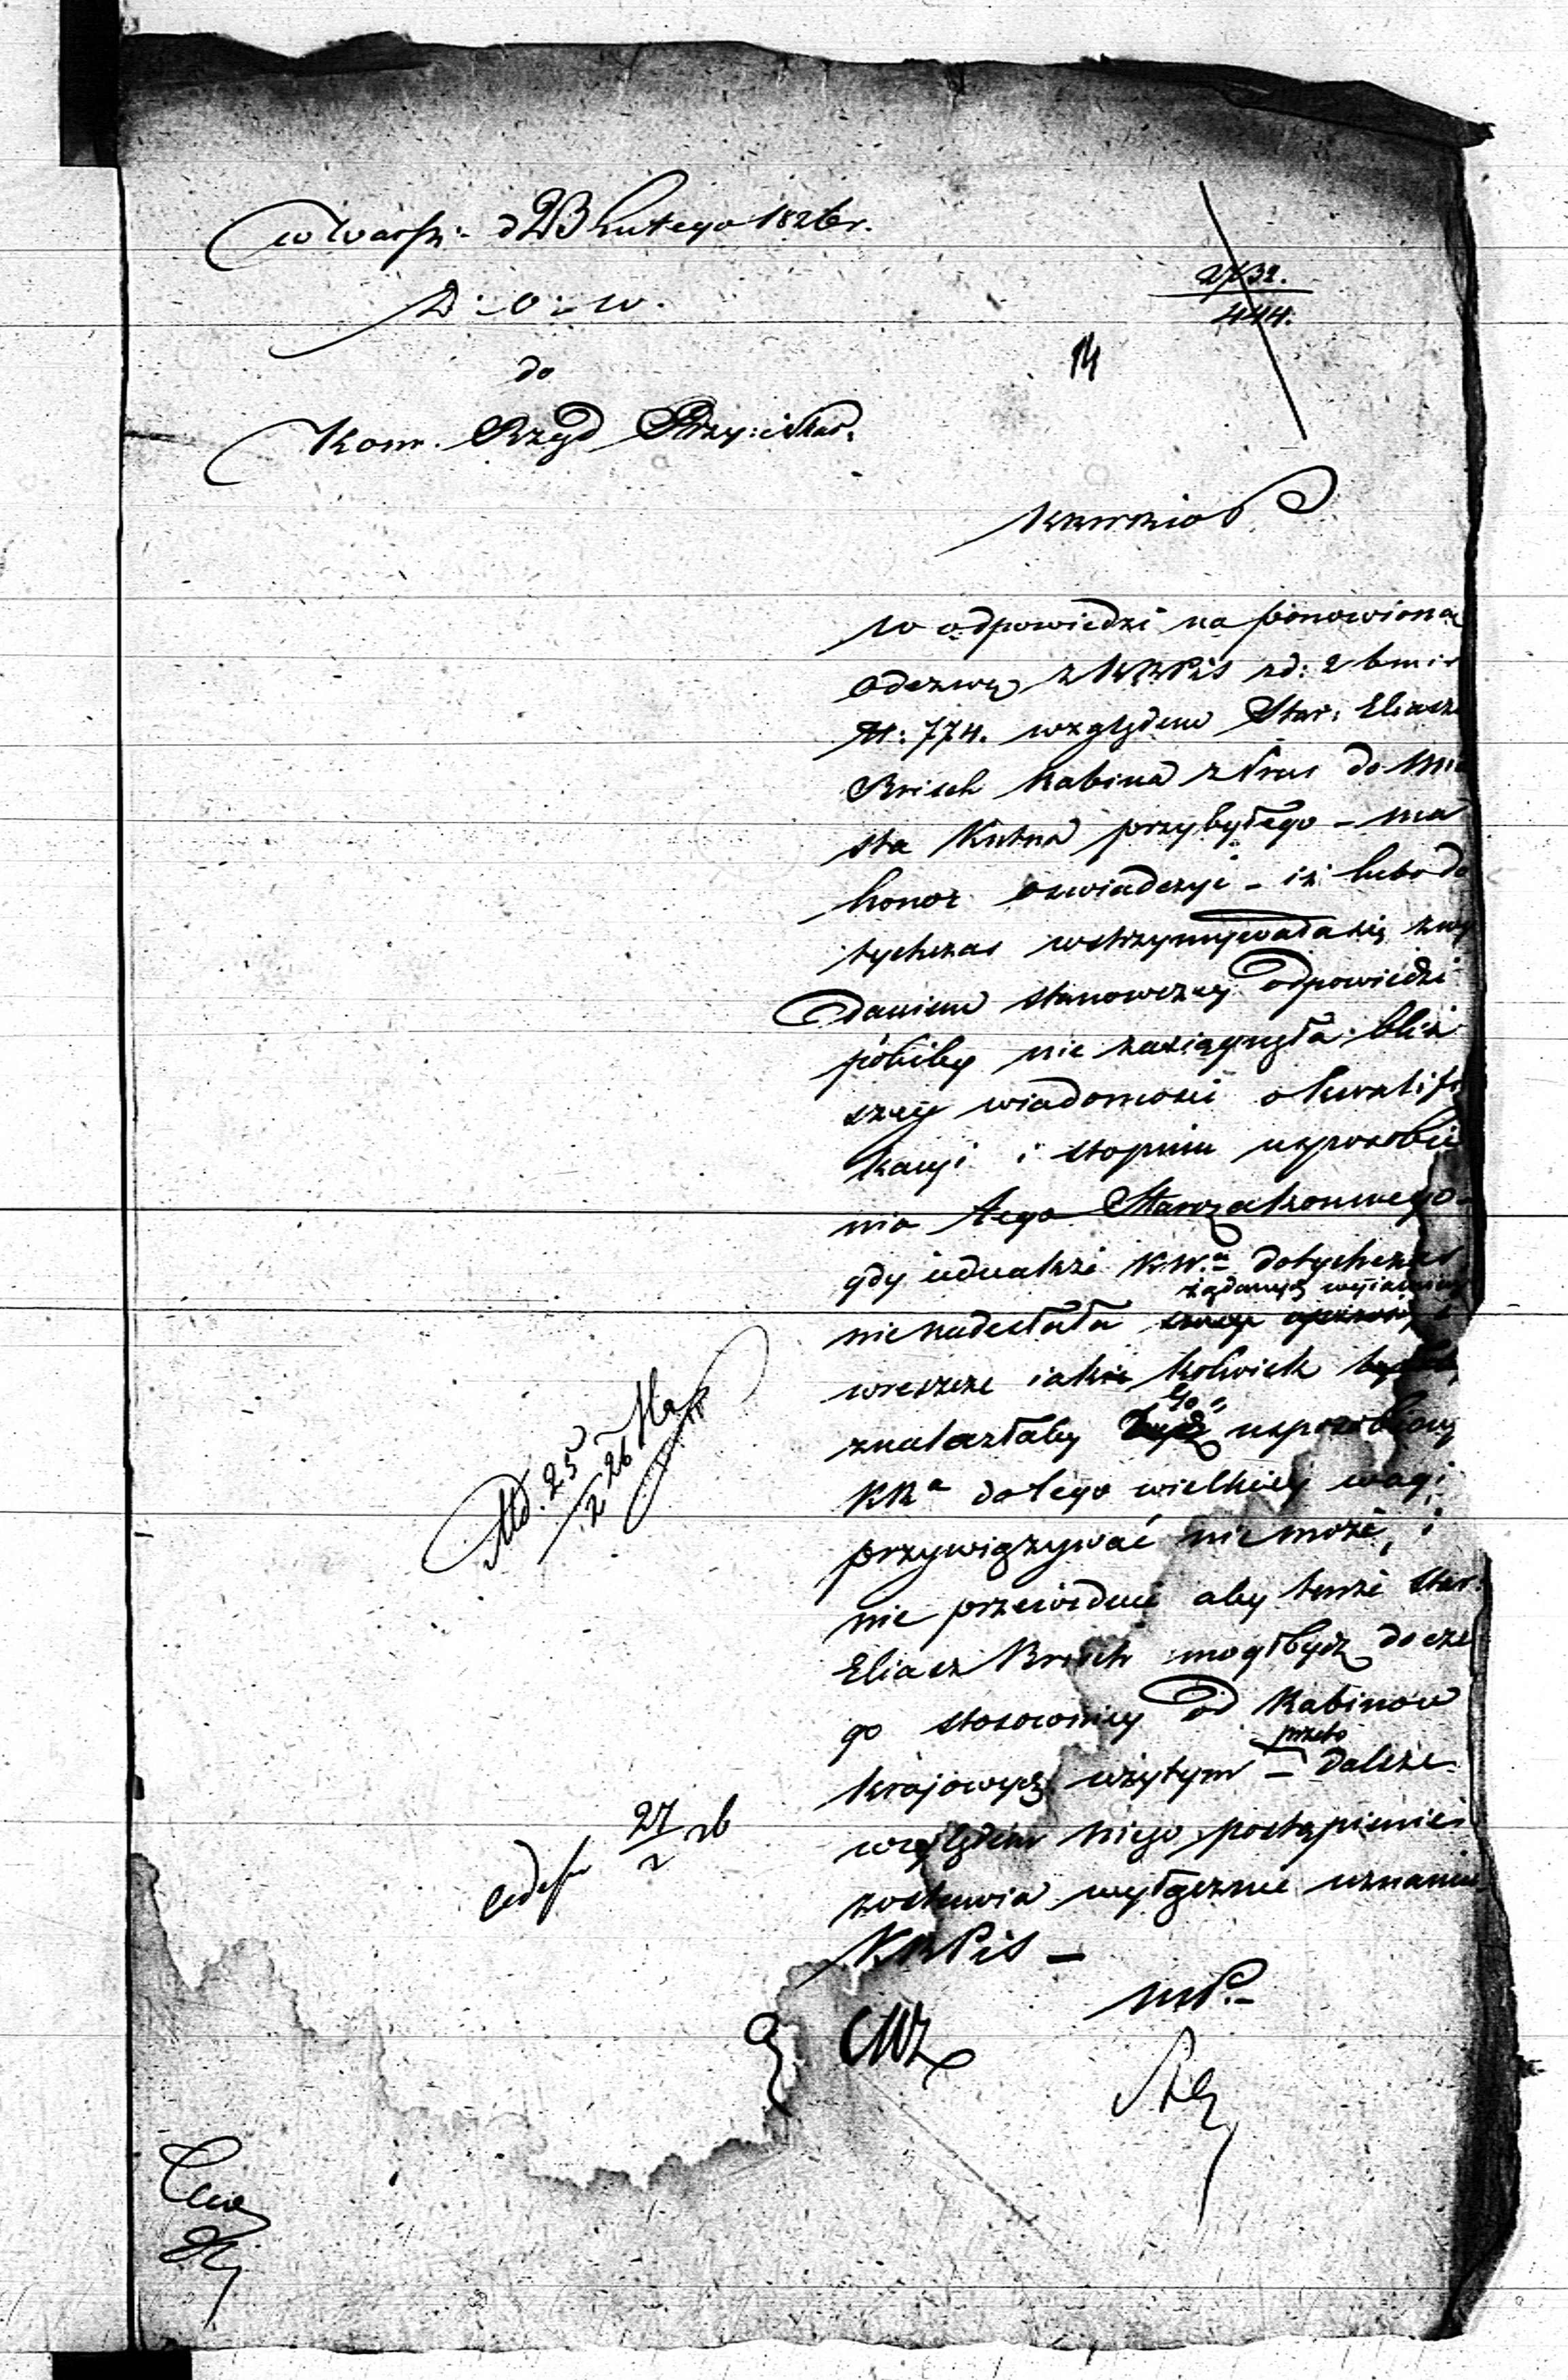 w Warsz: d 23 Lutego 1826 r.
2732.
444.
D: O: W.
14
do
Kom. Rząd Przy: i Skar:
w odpowiedzi na ponowioną
odezwę KRPiS z d: 2 b m i r
N: 774. względem Star: Eliasza
Brisch Rabina z Prus do Mia
sta Kutna przybyłego – ma
honor oswiadczyć – iż lubo do
tychczas wstrzymywała się z wy
daniem stanowczey odpowiedzi
pókiby nie zasiągnęła bliż
szey wiadomosci o kwalifi
kacyi i stopniu usposobie
nia tego Starozakonnego –
gdy iednakże KW.a dotychczas
żądanych wyiasnień
nie nadesłała
wreszcie iakie kolwiek
znalazłaby Go usposobiony
KRa do tego wielkiey wagi
przywiązywać nie może, i
nie przewiduie aby tenże Star:
Eliasz Brisch mógł bydz do cze
go stosowniey od Rabinow
krajowych użytym – przeto dalsze
względem niego postąpienie
zostawia wyłącznie uznaniu
KRPiS –
MP.
25
2 26
27
2 26